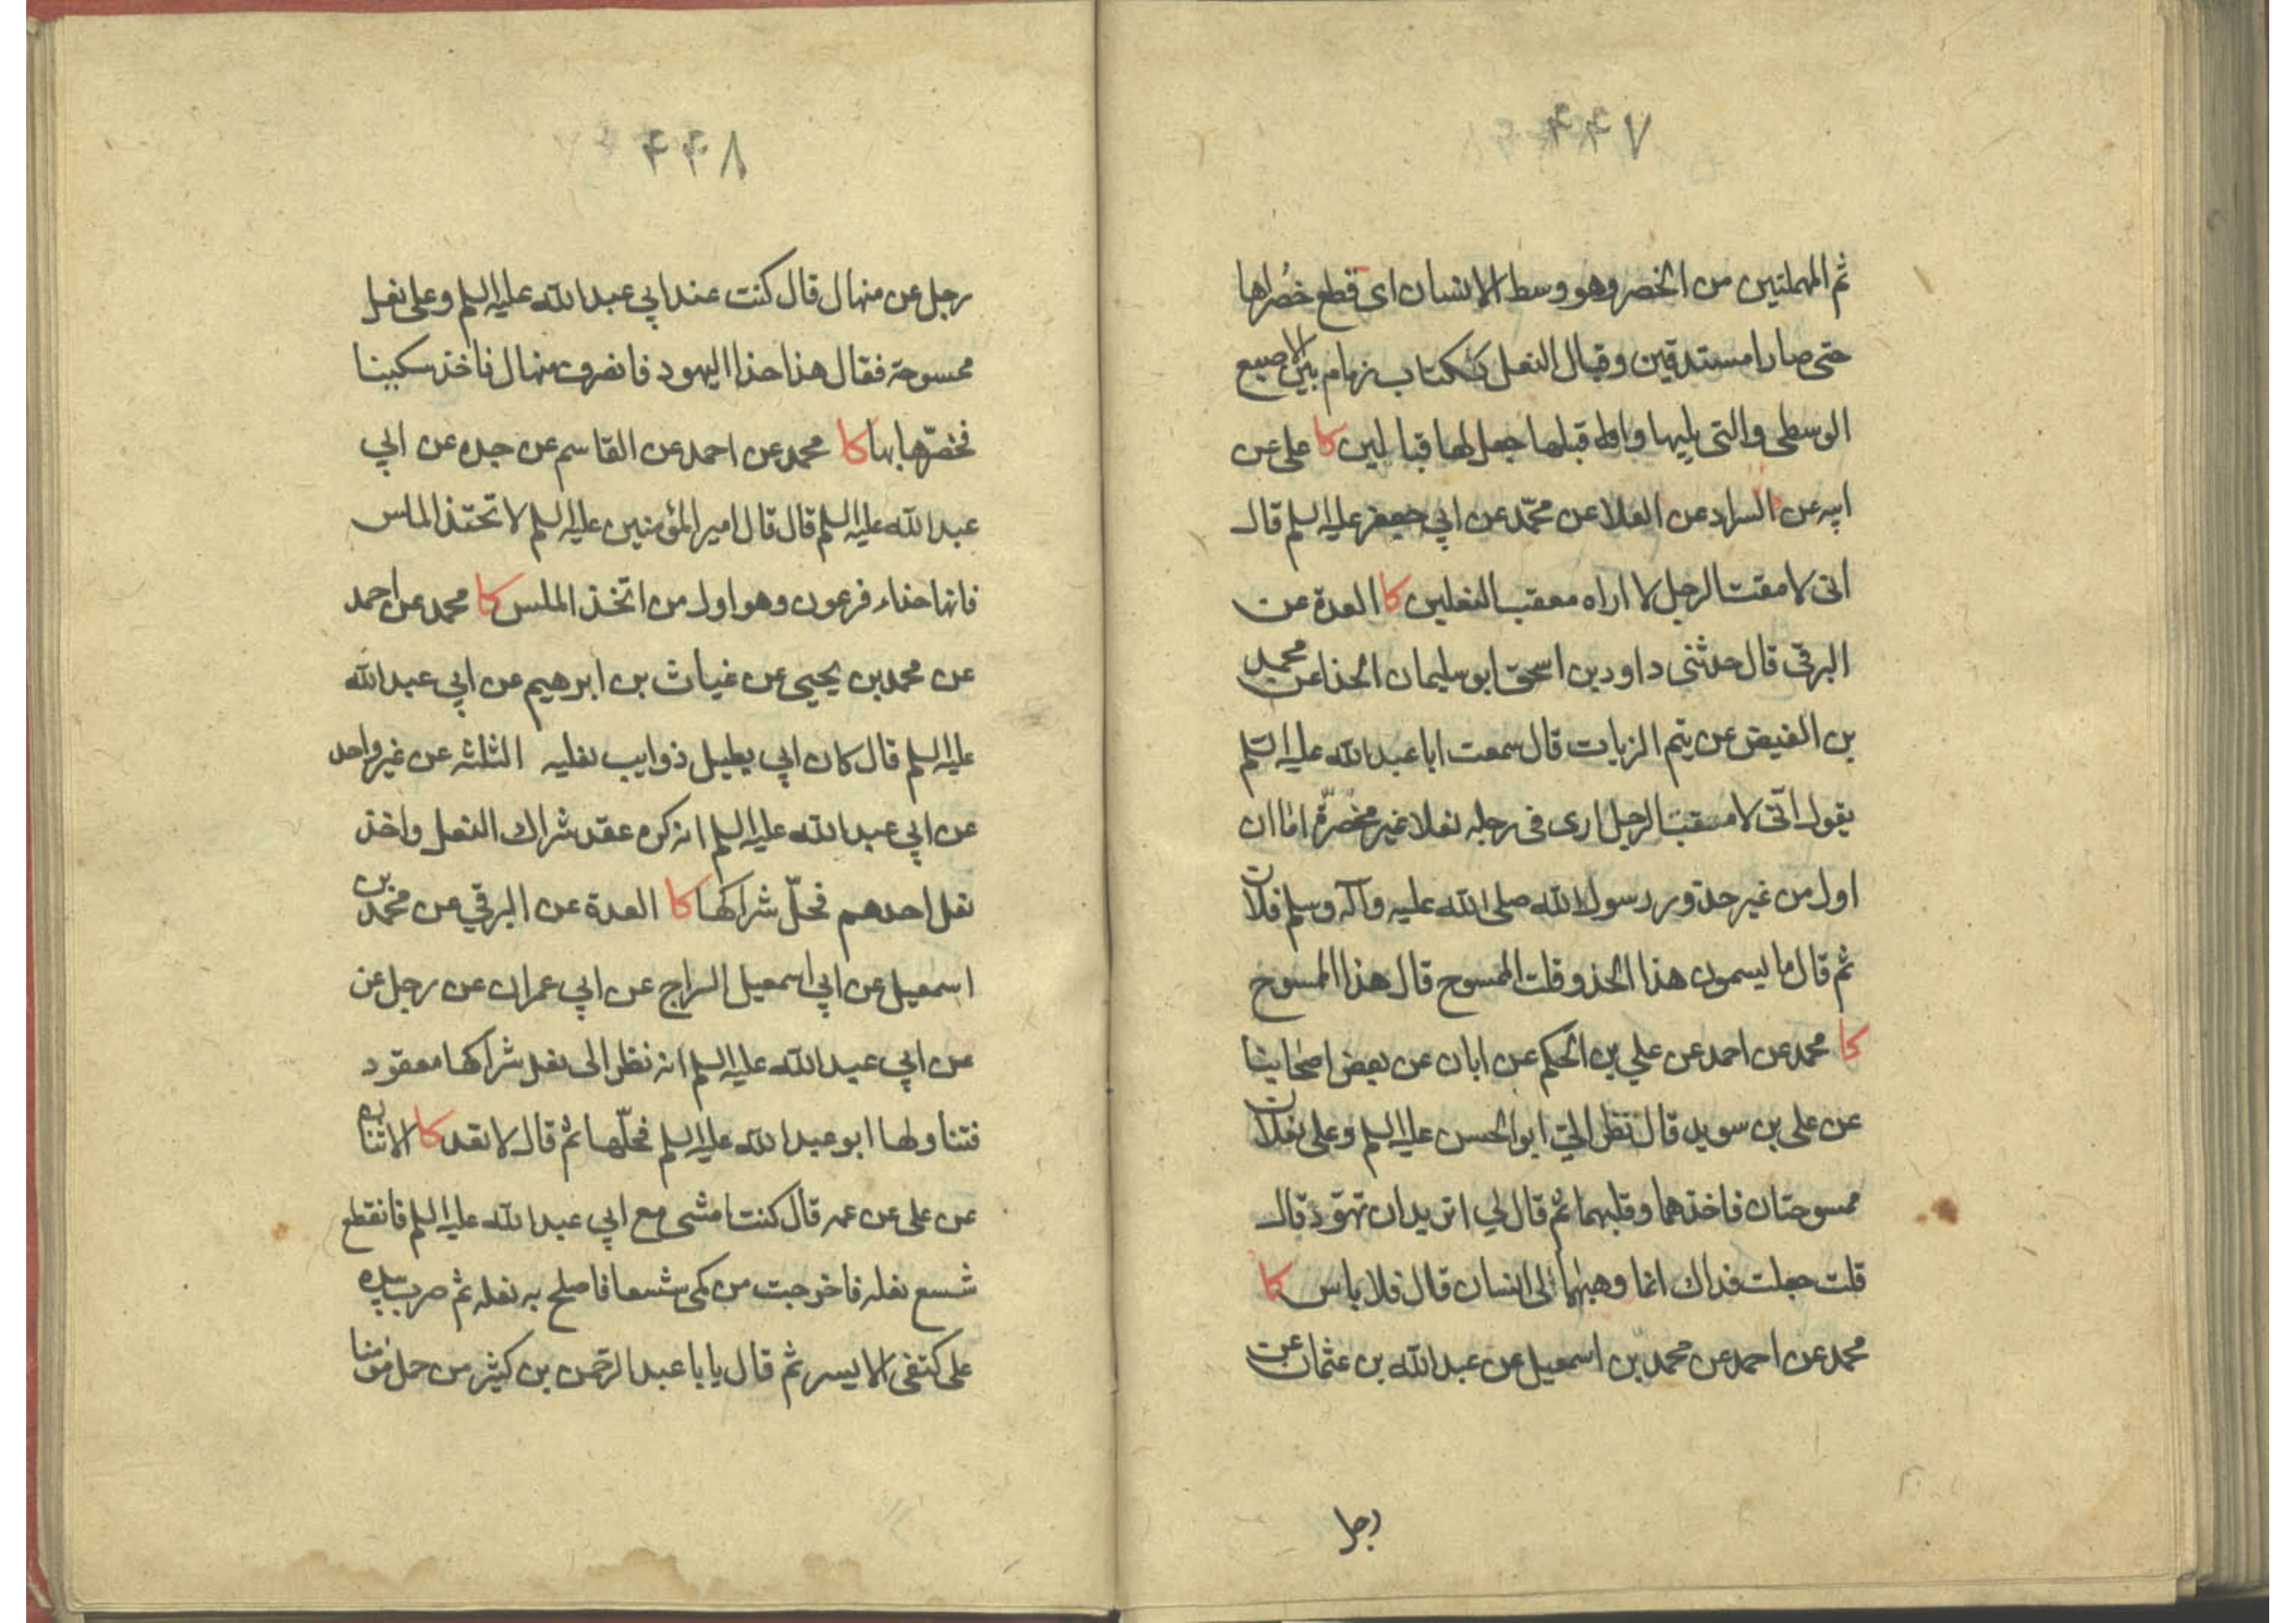 ٧٣٣
ثم المهملتين من الخصر وهو وسط الانسان اى قطع خصراها
حتى صارا مستدقين وقبال النعل ككتاب زمام بين الاصبع
الوسطى والتى يليها واقبلها جعل لها قبالين كا على عن
ابيه عن السراد عن العلا عن محمّد عن ابي جعفر عليه السلم قال
انى لامقت الرجل لا اراه معقب النعلين كا العدة عن
البرقى قال حدثنى داود بن اسحق ابو سليمان الحذا عن محمد
بن الفيض عن تيم الزيات قال سمعت ابا عبد الله عليه السلم
يقول انّى لامقت الرجل ارى فى رجله نعلا غير مخصّرة اما ان
اول من غير حذو رسول الله صلى الله عليه وآله وسلم فلان
ثم قال ما يسمون هذا الحذو قلت الممسوح قال هذا الممسوح
كا محمد عن احمد عن علي بن الحكم عن ابان عن بعض اصحابنا
عن على بن سويد قال نظر الىّ ابو الحسن عليه السلم وعلى نعلان
ممسوحتان فاخذهما وقلبهما ثم قال لي اتريد ان تهوّد قال
قلت جعلت فداك انما وهبهما الى انسان قال فلا باس كا
محمد عن احمد عن محمد بن اسمعيل عن عبد الله بن عثمان عن
رجل
٨٣٣
رجل عن منهال قال كنت عند ابي عبد الله عليه السلم وعلى نعل
ممسوحة فقال هذا حذا اليهود فانصرف منهال فاخذ سكينا
فخصّرها بها كا محمد عن احمد عن القاسم عن جده عن ابي
عبد الله عليه السلم قال قال امير المؤمنين عليه السلم لا تحتذ الملس
فانها حذاء فرعون وهو اول من اتخذ الملس كا محمد عن احمد
عن محمد بن يحيى عن غياث بن ابرهيم عن ابي عبد الله
عليه السلم قال كان ابي يطيل ذوايب نعليه الثلثه عن غير واحد
عن ابي عبد الله عليه السلم انه كره عقد شراك النعل واخذ
نعل احدهم فحلّ شراكها كا العدة عن البرقي عن محمد بن
اسمعيل عن ابي اسمعيل السراج عن ابي عمران عن رجل عن
عن ابي عبد الله عليه السلم انه نظر الى نعل شراكها معقود
فتناولها ابو عبد الله عليه السلم فحلّها ثم قال لا تعد كا الاثنان
عن على عن عمه قال كنت امشى مع ابي عبد الله عليه السلم فانقطع
شسع نعله فاخرجت من كمى شسعا فاصلح به نعله ثم ضرب بيده
على كتفى الايسر ثم قال يا با عبد الرحمن بن كثير من حمل مؤمنا